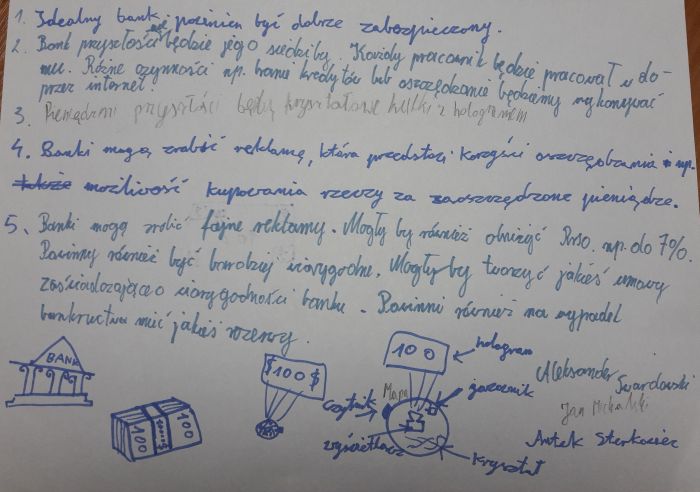 1. Idealny bank powinien być dobrze zabezpieczony.
2. Bank przyszłości nie będzie jego siedzibą. Każdy pracownik będzie pracował w do-
mu. Różne czynności np. branie kredytów lub oszczędzanie będziemy wykonywać
przez internet.
3. Pieniędzmi przyszłości będą kryształowe kulki z hologramem
4. Banki mogą zrobić reklamę, która przedstawi korzyści oszczędzania np.
możliwość kupowania rzeczy za zaoszczędzone pieniądze.
5. Banki mogą zrobić fajne reklamy. Mogły by również obniżyć np. do 7%.
Powinny również być bardziej wiarygodne. Mogły by tworzyć jakieś umowy
zaświadczające o wiarygodności banku. Powinni również na wypadek
bankructwa mieć jakieś rezerwy.
BANK
100
100
$100$
100
hologram
Mapa
czytnik
wyświetlacz
kryształ
Aleksander Twardowski
Jan Michalski
Antek